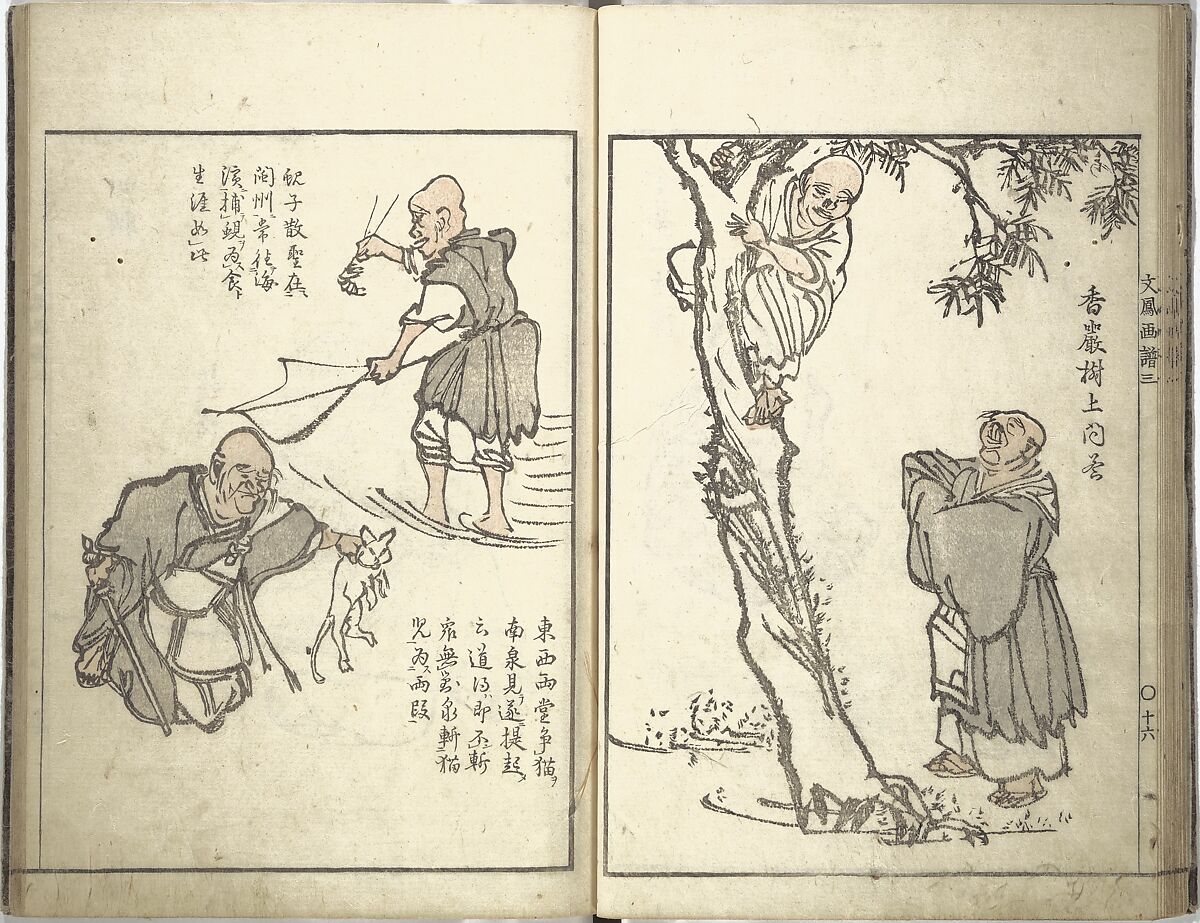 文鳳画譜三
〇十六
香嚴樹上问答
蚬子散聖在
閩州常往海
濱捕蜆為食
生涯如此
東西両堂争猫
南泉見遂提起
云道得即不斬
衆無対泉斬猫
児為両段